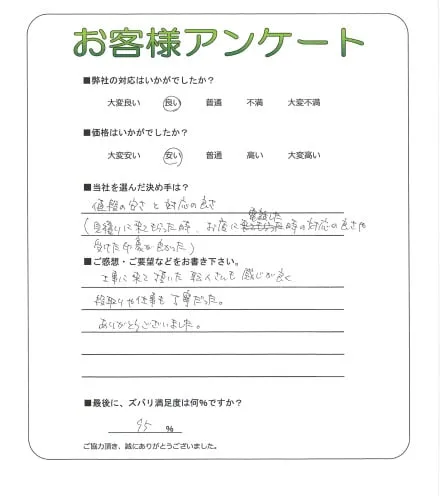 お客様アンケート
■弊社の対応はいかがでしたか?
大変良い 良い 普通 不満 大変不満
■価格はいかがでしたか?
大変安い 安い 普通 高い 大変高い
■当社を選んだ決め手は?
値段の安さと対応の良さ
電話した
(見積りに来てもらった時、お店に来てもらった時の対応の良さや
受けた印象が良かった)
■ご感想・ご要望などをお書き下さい。
工事に来て頂いた職人さんも感じが良く
段取りや仕事も丁寧だった。
ありがとうございました。
■最後に、ズバリ満足度は何%ですか?
95 %
ご協力頂き、誠にありがとうございました。